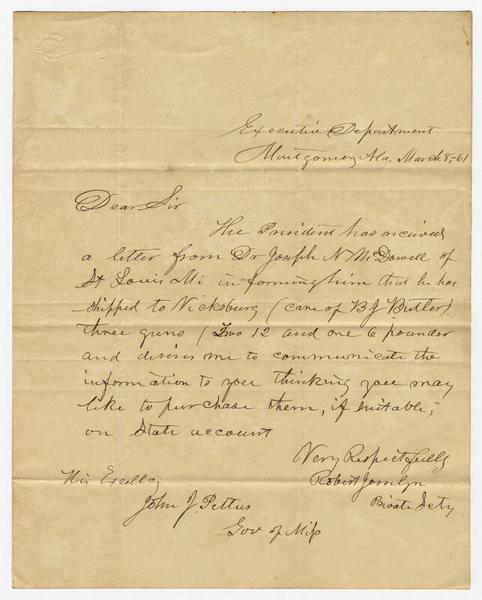 Executive Department
Montgomery Ala, March 8, 61
Dear Sir
The President has received
a letter from Dr Joseph N McDowell of
St Louis Mi informing him that he has
shipped to Vicksburg (care of B J Butler)
three guns (Two 12 and one 6 pounder
and desires me to communicate the
information to you thinking you may
like to purchase them, if suitable,
on State account
Very Respectfully
Robert Josselyn
Private Secty
His Excellcy
John J. Pettus
Gov of Miss